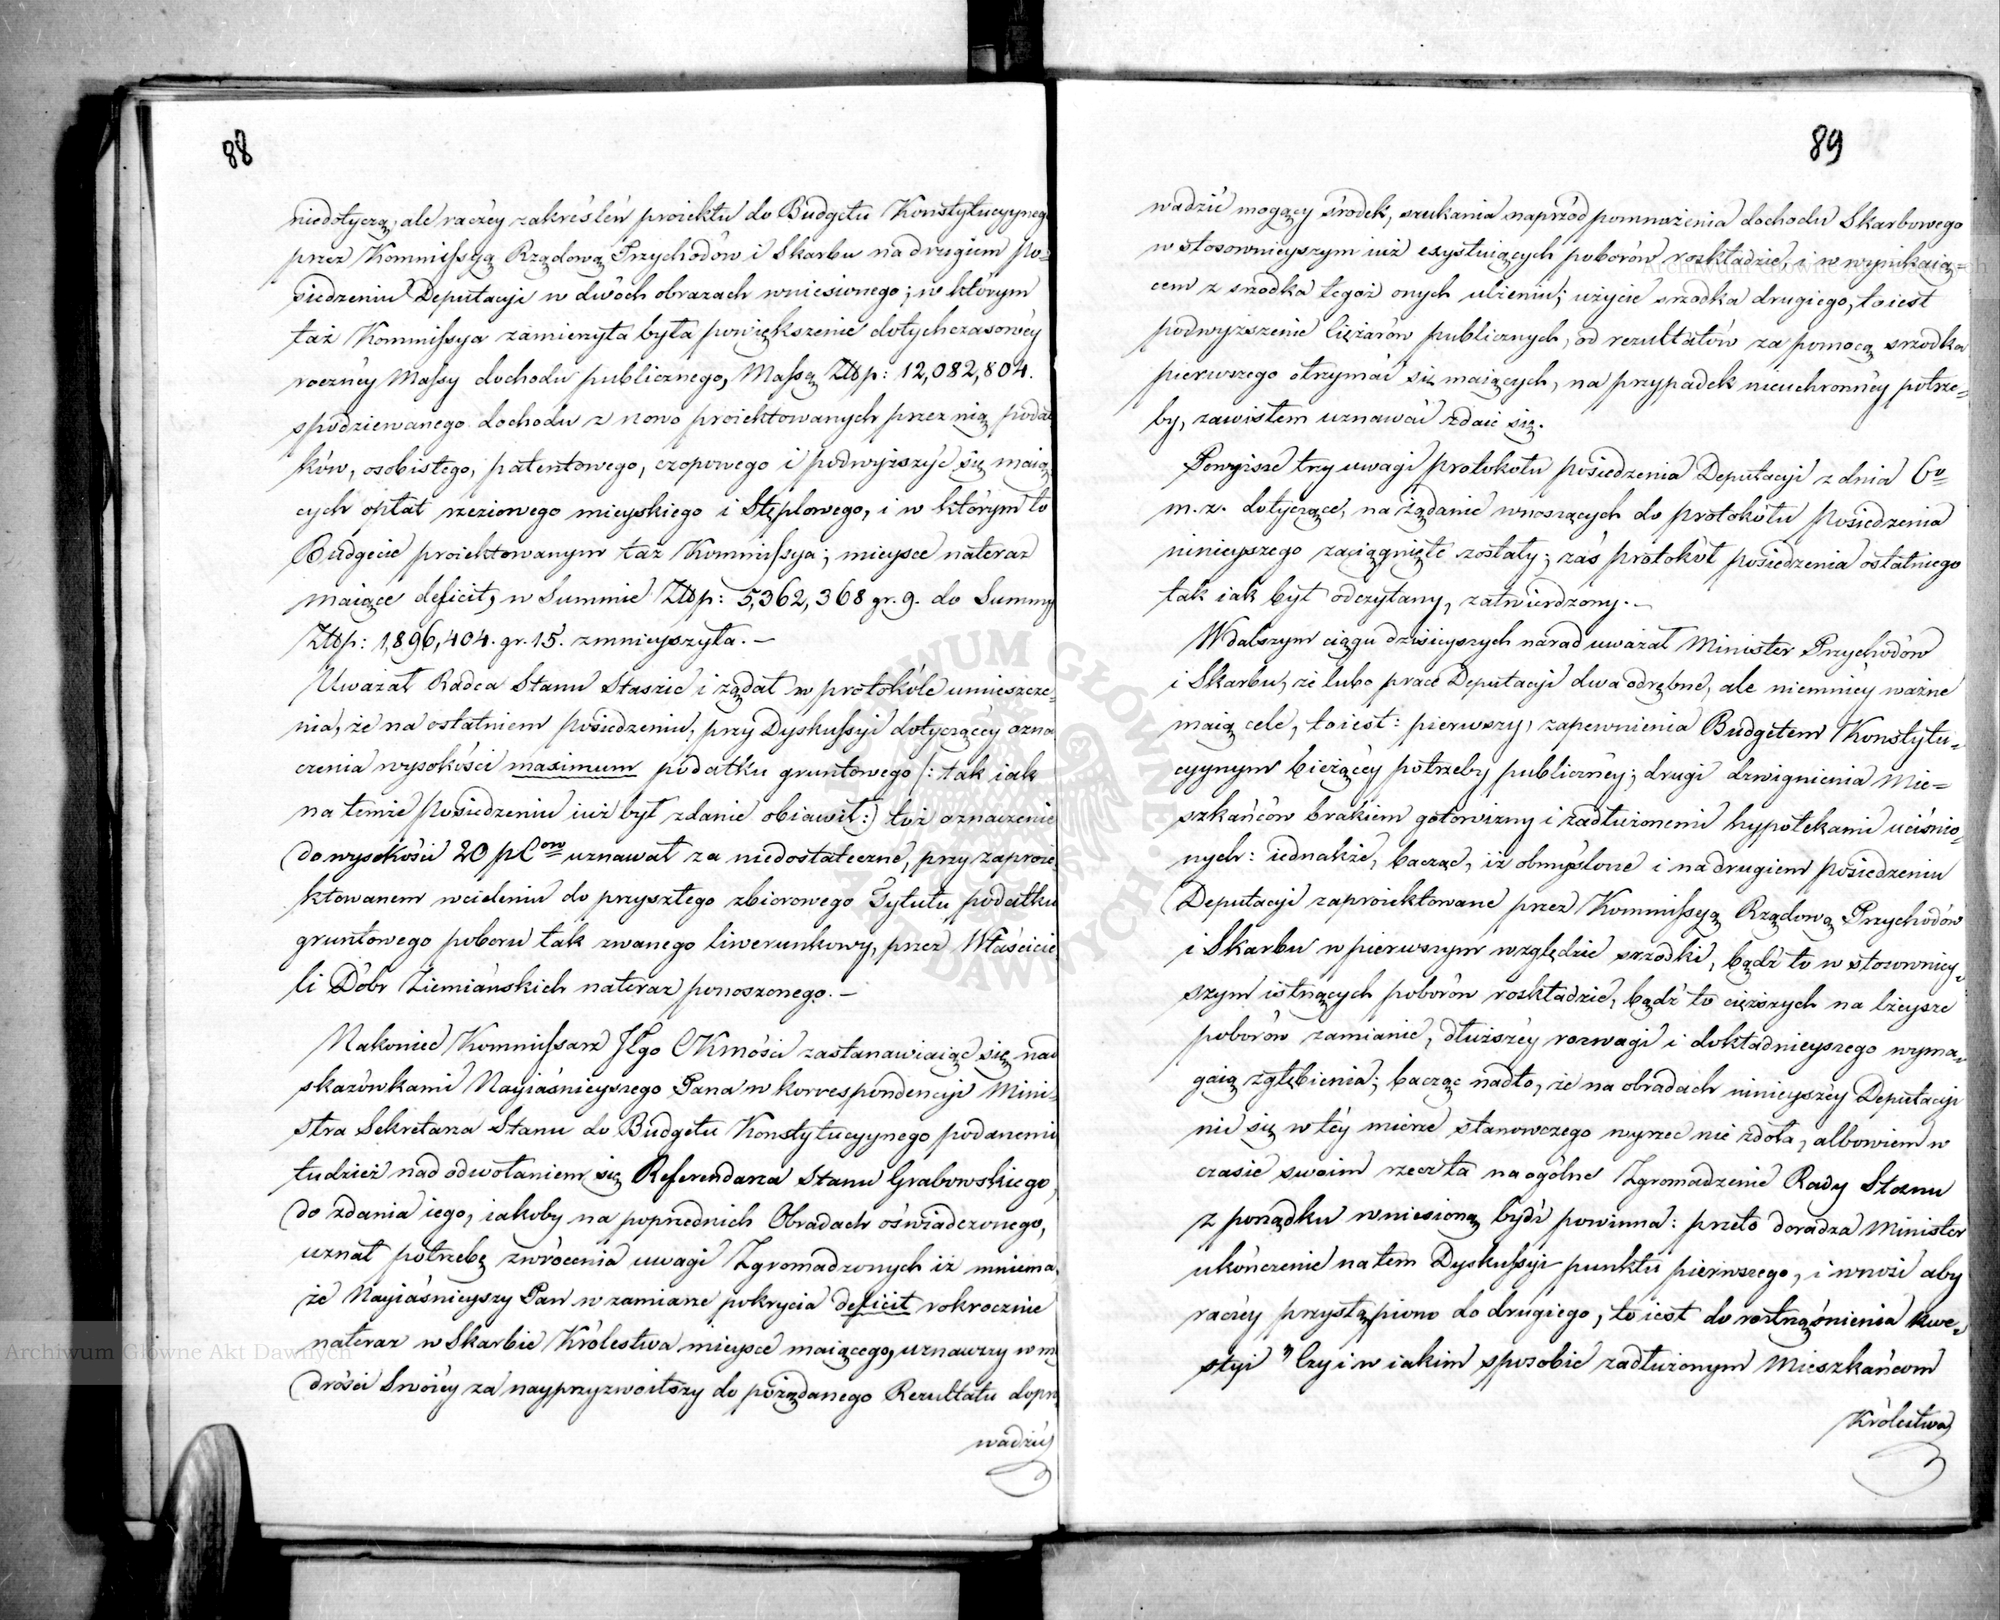 88
niedotyczą, ale raczéy zakreśleń proiektu do Budgetu Konstytucyynego
przez Kommissyą Rządową Przychodów i Skarbu na drugiem Po-
siedzeniu Deputacyi w dwóch obrazach wniesionego; w którym
taż Kommissya zamierzyła była powiększenie dotychczasowéy
rocznéy Massy dochodu publicznego, Massą Złłp: 12,082,804.
spodziewanego dochodu z nowo proiektowanych przez nią podat
ków, osobistego, patentowego, czopowego i podwyższyć się maią
cych opłat rzezionego mieyskiego i Stęplowego, i w którym to
Budgecie proiektowanym taż Kommissya; mieysce nateraz
maiące deficit, w Summie Złłp: 5,362,368 gr. 9. do Summy
Złłp: 1,896,404. gr. 15. zmnieyszyła. —
Uważał Radca Stanu Staszic i żądał w protokóle umieszcze-
nia, że na ostatniem posiedzeniu, przy Dyskussyi dotyczącéy ozna
czenia wysokości maximum podatku gruntowego /: tak iak
na temże Posiedzeniu iuż był zdanie obiawił:/ toż oznaczenie
do wysokości 20 pCow uznawał za niedostateczne, przy zaproie
ktowanem wcieleniu do przyszłego zbiorowego Tytułu podatku
gruntowego poboru tak zwanego liwerunkowy, przez Właścicie
li Dóbr Ziemiańskich nateraz ponoszonego. —
Nakoniec Kommissarz JCgo CKmości zastanawiaiąc się nad
skazówkami Nayiaśnieyszego Pana w korrespondencyi Mini-
stra Sekretarza Stanu do Budgetu Konstytucyynego podanemi
tudzież nad odwołaniem się Referendarza Stanu Grabowskiego,
do zdania iego, iakoby na poprzednich Obradach oświadczonego,
uznał potrzebę zwrócenia uwagi Zgromadzonych iż mniema,
że Nayiaśnieyszy Pan w zamiarze pokrycia deficit rokrocznie
nateraz w Skarbie Królestwa mieysce maiącego, uznawszy w mą
drości Swoiéy za nayprzyzwoitszy do pożądanego Rezultatu dopro
wadzić
89
wadzić mogący środek, szukania naprzód pomnożenia dochodu Skarbowego
w stosownieyszym iuż exystuiących poborów roskładzie, i w wynikaią=
cem z srodka tegoż onych ulżeniu; użycie srzodka drugiego, to iest
podwyższenie Ciężarów publicznych, od rezultatów za pomocą srzodka
pierwszego otrzymać się maiących, na przypadek nieuchronnéy potrze-
by, zawisłem uznawać zdaie się.
Powyższe trzy uwagi protokołu posiedzenia Deputacyi z dnia 6go
m. z. dotyczące, na żądanie wnoszących do protokółu Posiedzenia
ninieyszego zaciągnięte zostały; zaś protokół posiedzenia ostatniego
tak iak był odczytany, zatwierdzony. —
W dalszym ciągu dzisieyszych narad uważał Minister Przychodów
i Skarbu, że lubo prace Deputacyi dwa odrębne, ale niemniéy ważne
maią cele, to iest: pierwszy, zapewnienia Budgetem Konstytu-
cyynym bieżącéy potrzeby publicznéy; drugi dzwignienia Mie=
szkańców brakiem gotowizny i zadłużonemi hypotekami uciśnio-
nych: iednakże, bacząc, iż obmyślone i na drugiem posiedzeniu
Deputacyi zaproiektowane przez Kommissyą Rządową Przychodów
i Skarbu w pierwszym względzie srzodki, bądź to w stosowniey-
szym istnących poborów roskładzie, bądź to cięższych na lżeysze
poborów zamianie, dłuższéy rozwagi i dokładnieyszego wyma-
gaią zgłębienia; bacząc nadto, że na obradach ninieyszéy Deputacyi
nic się w téy mierze stanowczego wyrzec nie zdoła, albowiem w
czasie swoim rzecz ta na ogólne Zgromadzenie Rady Stanu
z porządku wniesioną bydź powinna: przeto doradza Minister
ukończenie na tem Dyskussyi punktu pierwszego, i wnosi aby
raczéy przystąpiono do drugiego, to iest do roztrząśnienia kwe-
styi "Czy i w iakim sposobie zadłużonym Mieszkańcom
Królestwa